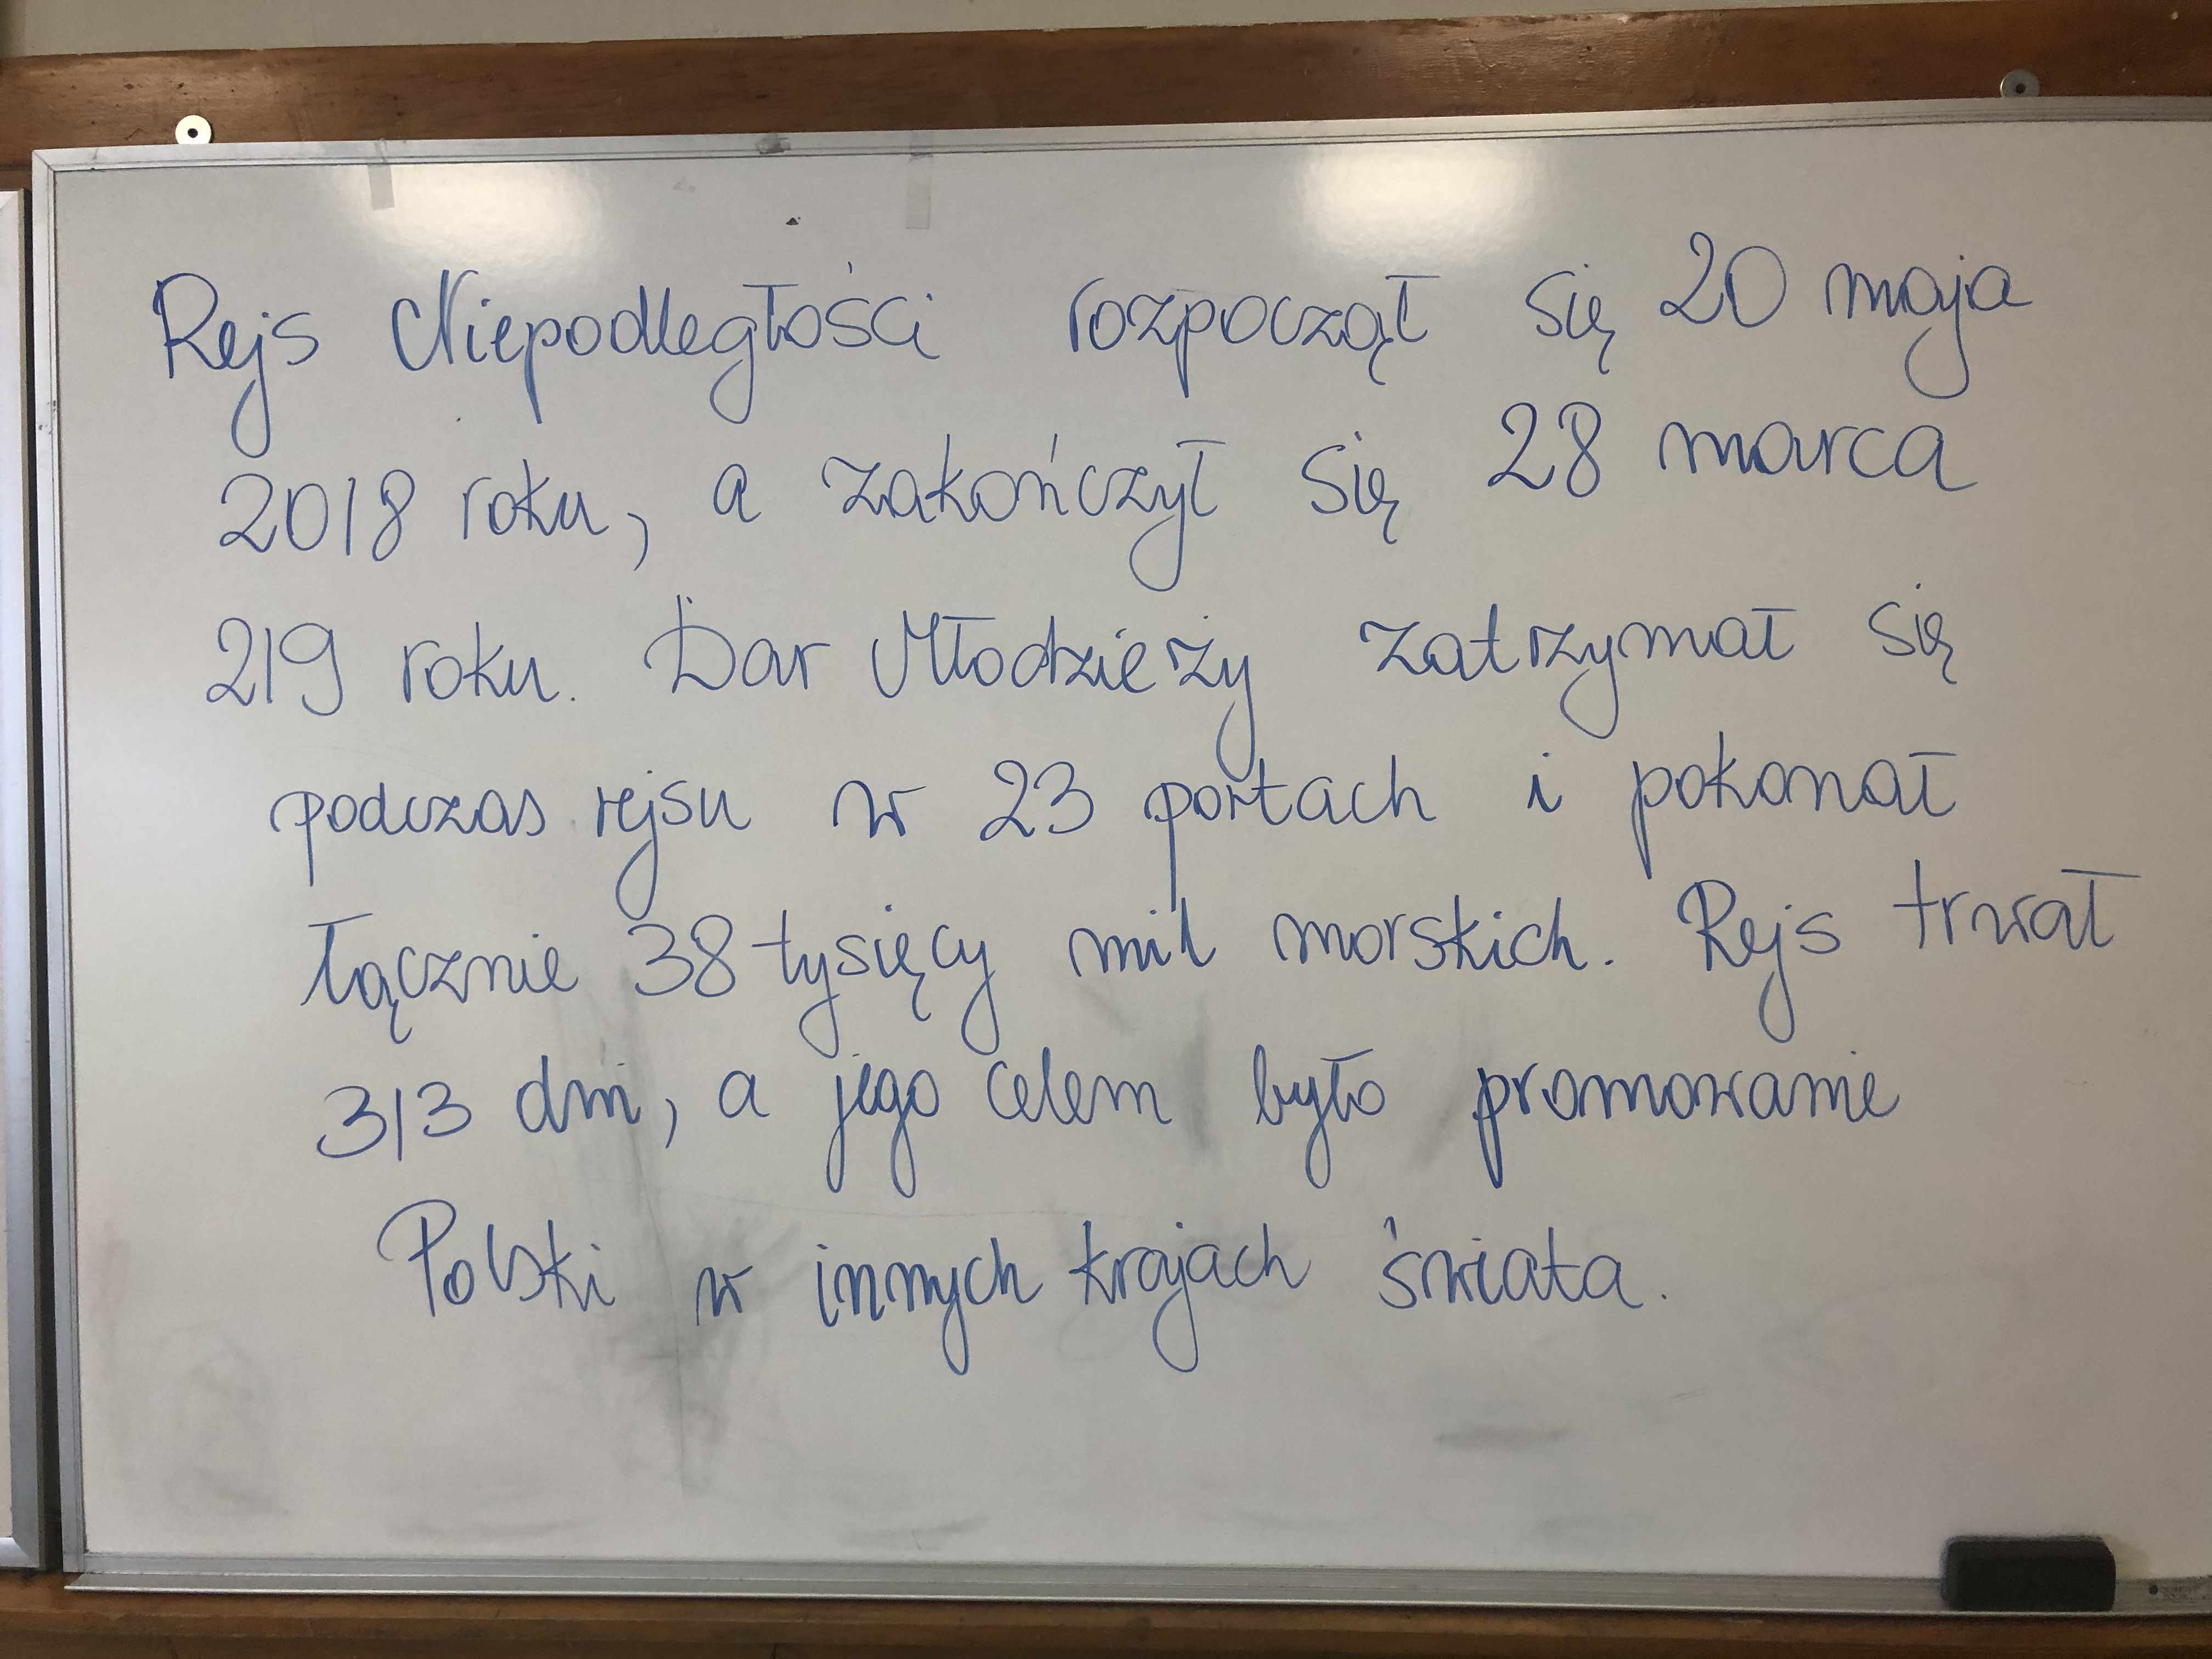 Rejs Niepodległości rozpoczął się 20 maja
2018 roku, a zakończył się 28 marca
219 roku. Dar Młodzieży zatrzymał się
podczas rejsu w 23 portach i pokonał
łącznie 38 tysięcy mil morskich. Rejs trwał
313 dni, a jego celem było promowanie
Polski w innych krajach świata.